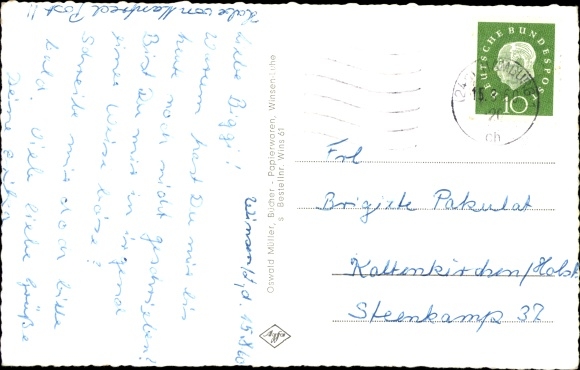 Habe von Manfred Post!!
Winsen/L, d. 15.8.60
Liebe Biggi!
Warum hast Du mir bis
heute noch nicht geschrieben?
Bist Du mir in irgend
einer Weise böse?
Schreibe mir doch bitte
bald. Viele liebe Grüße
Deine
Oswald Müller, Bücher - Papierwaren, Winsen/Luhe
s Bestellnr. Wins 61
DEUTSCHE BUNDESPOST
10
ch
Frl
Brigitte Pakulat
Kaltenkirchen/Holst
Steenkamp 32